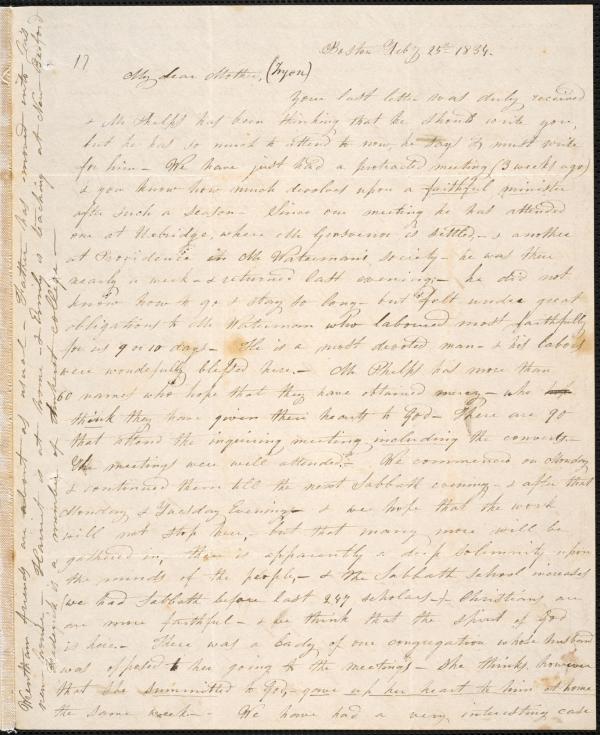 17
Boston Feby 25th 1834.
My dear Mother, (Tryon)
Your last letter was duly received
& Mr Phelps has been thinking that he should write you,
but he has so much to attend to now, he says I must write
for him - We have just had a protracted meeting (3 weeks ago)
& you know how much devolves upon a faithful minister
after such a season - Since our meeting he has attended
one at Uxbridge, where Mr Grosvenor is settled, - & another
at Providence in Mr Waterman's society - he was there
nearly a week - & returned last evening - he did not
know how to go & stay so long - but felt under great
obligations to Mr Waterman who laboured most faithfully
for us 9 or 10 days - He is a most devoted man - & his labors
were wonderfully blessed here. - Mr Phelps has more than
60 names who hope that they have obtained mercy - who
think they have given their hearts to God - There are 90
that attend the inquiring meeting including the converts. -
The meetings were well attended. - We commenced on Monday
& continued them till the next Sabbath evening - & after that
Monday & Tuesday Evening - & we hope that the work
will not stop here, - but that many more will be
gathered in, there is apparently a deep solemnity upon
the minds of the people, - & the Sabbath School increases
(we had Sabbath before last 247 scholars -) Christians are
are more faithful - & we think that the spirit of God
is here. - There was a Lady of our congregation whose husband
was opposed to her going to the meetings - She thinks, however
that she summitted to God, - gave up her heart to him at home
the same week - We have had a very interesting case
Wrentham friends are about as usual - Father has moved into his
own house - Harriet is at home - & Emily is teaching at New Bedford
Frederick is a member of Amherst college -